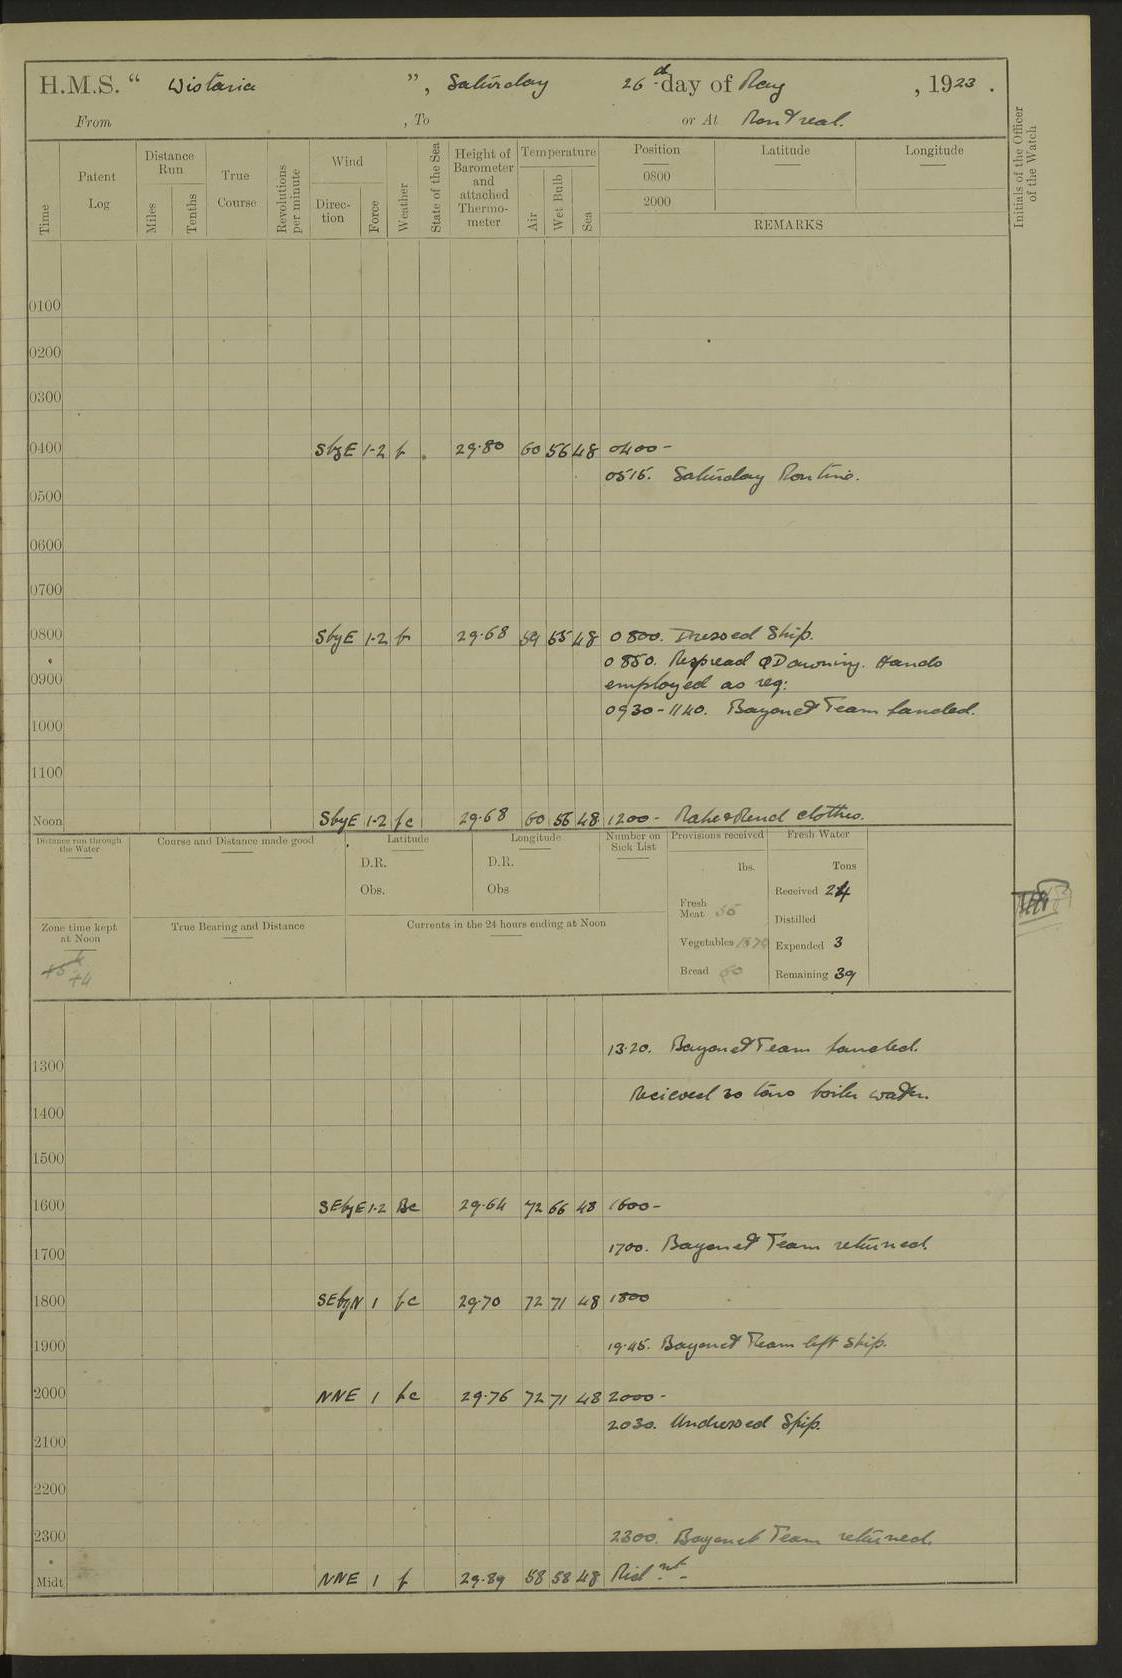 H.M.S. “ Wistaria ”, Saturday 26th day of May, 1923.
From , To or At Montreal.
Time
Patent Log
Distance Run
Miles
Tenths
True Course
Revolutions per minute
Wind
Direction
Force
Weather
State of the Sea
Height of Barometer and attached Thermometer
Temperature
Air
Wet Bulb
Sea
Position
0800
2000
Latitude
Longitude
REMARKS
Initials of the Officer of the Watch
0100
0200
0300
0400 SbyE 1-2 b 29.80 60 56 48 0400-
0515. Saturday Routine.
0500
0600
0700
0800 SbyE 1-2 b 29.68 59 55 48 0800. Dressed Ship.
0850. Respread Awning. Hands
0900
employed as req:
0930-1140. Bayonet Team landed.
1000
1100
Noon SbyE 1-2 bc 29.68 60 56 48 1200- Make & Mend clothes.
Distance run through the Water
Course and Distance made good
Latitude
D.R.
Obs.
Longitude
D.R.
Obs
Number on Sick List
Provisions received
lbs.
Fresh Meat 56
Vegetables
Bread 60
Fresh Water
Tons
Received 24
Distilled
Expended 3
Remaining 39
Zone time kept at Noon
+5 +4
True Bearing and Distance
Currents in the 24 hours ending at Noon
13.20. Bayonet Team landed.
1300
Recieved 20 tons boiler water.
1400
1500
1600 SEbyE 1-2 Bc 29.64 72 66 48 1600-
1700. Bayonet Team returned.
1700
1800 SEbyN 1 bc 29.70 72 71 48 1800
19.45. Bayonet Team left ship.
1900
2000 NNE 1 bc 29.76 72 71 48 2000-
2030. Undressed Ship.
2100
2200
2300 2300. Bayonet Team returned.
Midt NNE 1 b 29.89 58 58 48 Midnt-